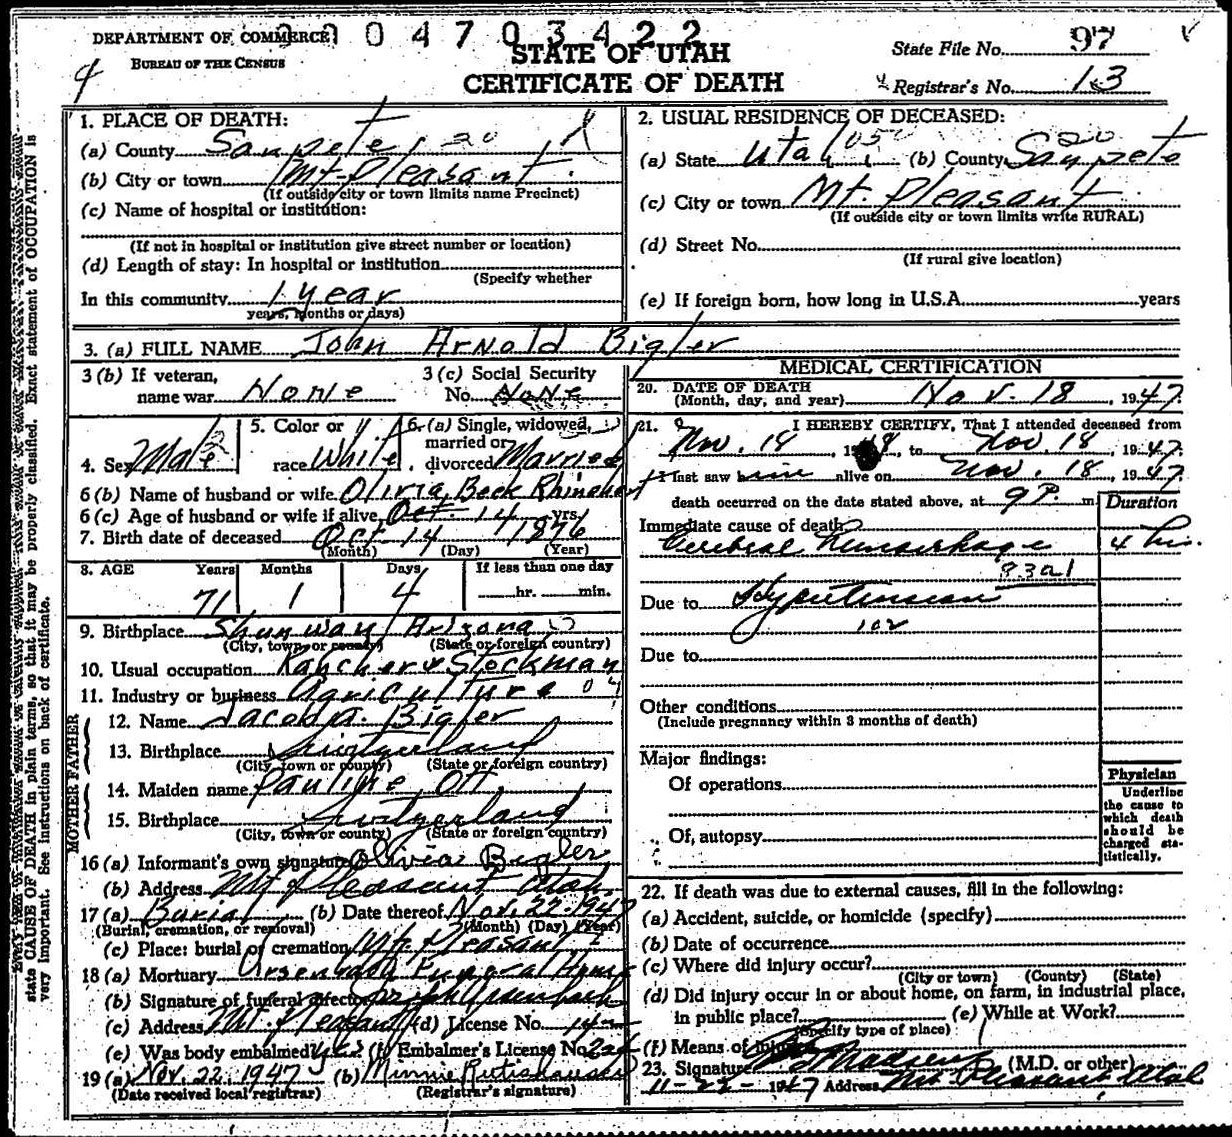 DEPARTMENT OF COMMERCE
BUREAU OF THE CENSUS
4 7 0 3 4 2 2
STATE OF UTAH
CERTIFICATE OF DEATH
State File No. 97
Registrar's No. 13
1. PLACE OF DEATH:
(a) County Sanpete 20
(b) City or town Mt. Pleasant
(If outside city or town limits name Precinct)
(c) Name of hospital or institution:
(If not in hospital or institution give street number or location)
(d) Length of stay: In hospital or institution
(Specify whether
In this community 1 year
years, months or days)
2. USUAL RESIDENCE OF DECEASED:
(a) State Utah (b) County Sanpete 20
(c) City or town Mt. Pleasant
(If outside city or town limits write RURAL)
(d) Street No.
(If rural give location)
(e) If foreign born, how long in U.S.A. years
3. (a) FULL NAME John Arnold Bigler
3 (b) If veteran,
name war None
3 (c) Social Security
No. None
4. Sex Male
5. Color or
race White
6. (a) Single, widowed,
married or
divorced Married
6 (b) Name of husband or wife Olivia Beck Rhinehart
6 (c) Age of husband or wife if alive, Oct. 14 yrs.
7. Birth date of deceased Oct 14 1876
(Month) (Day) (Year)
8. AGE Years Months Days If less than one day
71 1 4 hr. min.
9. Birthplace Shunway Arizona
(City, town or county) (State or foreign country)
10. Usual occupation Rancher & Stockman
11. Industry or business Agriculture
MOTHER FATHER
12. Name Jacob A. Bigler
13. Birthplace Switzerland
(City, town or county) (State or foreign country)
14. Maiden name Pauline Ott
15. Birthplace Switzerland
(City, town or county) (State or foreign country)
16 (a) Informant's own signature Olivia Bigler
(b) Address Mt Pleasant Utah
17 (a) Burial (b) Date thereof Nov. 22. 1947
(Burial, cremation, or removal) (Month) (Day) (Year)
(c) Place: burial or cremation Mt. Pleasant
18 (a) Mortuary Ursenbach Funeral Home
(b) Signature of funeral director Ursenbach
(c) Address Mt. Pleasant (d) License No.
(e) Was body embalmed yes (f) Embalmer's License No.
19 (a) Nov. 22, 1947 (b) Minnie Rutishauser
(Date received local registrar) (Registrar's signature)
MEDICAL CERTIFICATION
20. DATE OF DEATH
(Month, day, and year) Nov. 18, 1947
21. I HEREBY CERTIFY, That I attended deceased from
Nov. 18, 19 to Nov. 18, 1947
I last saw him alive on Nov. 18, 1947
death occurred on the date stated above, at 9 P. m
Duration
Immediate cause of death
Cerebral hemorrhage 4 hrs.
83a1
Due to Hypertension
102
Due to
Other conditions
(Include pregnancy within 3 months of death)
Major findings:
Of operations
Of, autopsy
Physician
Underline
the cause to
which death
should be
charged sta-
tistically.
22. If death was due to external causes, fill in the following:
(a) Accident, suicide, or homicide (specify)
(b) Date of occurrence
(c) Where did injury occur?
(City or town) (County) (State)
(d) Did injury occur in or about home, on farm, in industrial place,
in public place? (e) While at Work?
(Specify type of place)
(f) Means of injury
23. Signature Madsen (M.D. or other)
11-22-1947 Address Mt Pleasant Utah
state CAUSE OF DEATH in plain terms, so that it may be properly classified. Exact statement of OCCUPATION is
very important. See instructions on back of certificate.